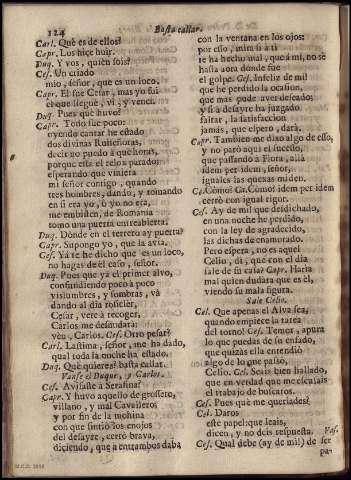 124
Basta callar.
Carl. Què es de ellos?
Capr. Los hize huir.
Duq. Y vos, quien sois?
Ces. Un criado
mio, señor, que es un loco.
Capr. El fue Cesar, mas yo fui
el que llegué, vi, y vencì.
Duq. Pues què huvo?
Capr. Todo fue poco:
oyendo cantar he estado
dos divinas Ruiseñoras,
decir no puedo à què horas,
porque està el relox parado:
esperando que viniera
mi señor contigo, quando
tres hombres, dando, y tomando
en si era yo, ò yo no era,
me embisten, de Romania
tomo una puerta entreabierta.
Duq. Dònde en el terrero ay puerta?
Capr. Supongo yo, que la avia.
Ces. Yà te he dicho que es un loco,
no hagas de èl caso, señor.
Duq. Pues que yà el primer alvo,
confundiendo poco à poco
vislumbres, y sombras, và
dando al dia rosicler,
Cesar, vete à recoger,
Carlos me desnudarà:
vèn, Carlos. Ces. Otro pesar?
Carl. Lastima, señor, me ha dado,
qual toda la noche ha estado.
Duq. Què quieres? basta callar.
Vanse el Duque, y Carlos.
Ces. Avisaste à Serafina?
Capr. Y huvo aquello de grossero,
villano, y mal Cavallero;
y por fin de la mohina
con que sintiò los enojos
del desayre, cerrò brava,
diciendo, que à entrambos daba
con la ventana en los ojos:
por esso, mira si à ti
te ha hecho mal, que à mi, no sè
hasta aora donde fue
el golpe. Ces. Infeliz de mi!
que he perdido la ocasion,
que mas pude aver deseado;
y si à desayre ha juzgado
faltar, la satisfaccion
jamàs, que espero, darà.
Capr. Tambien me dixo algo de esso,
y no parò aqui el sucesso,
que passando à Flora, allà
idem per idem, señor,
iguales las quexas miden.
Ces. Còmo? Ca. Còmo? idem per idem
cerrò con igual rigor.
Ces. Ay de mi! que desdichado,
en una noche he perdido,
con la ley de agradecido,
las dichas de enamorado.
Pero espera, no es aquel
Celio, di, que con el dia
sale de su casa? Capr. Haria
mal quien dudàra que es èl,
viendo su mala figura.
Sale Celio.
Cel. Que apenas el Alva sea,
quando empiece la tarea
del torno! Ces. Temor, apura
lo que puedas de su enfado,
que quizàs ella entendiò
algo de lo que passò,
Celio. Cel. Seais bien hallado,
que en verdad que me escusais
el trabajo de buscaros.
Ces. Pues què me queriades?
Cel. Daros
este papel: que leais,
dicen, y no deis respuesta. Vas.
Ces. Qual debe (ay de mi!) de ser
pa-